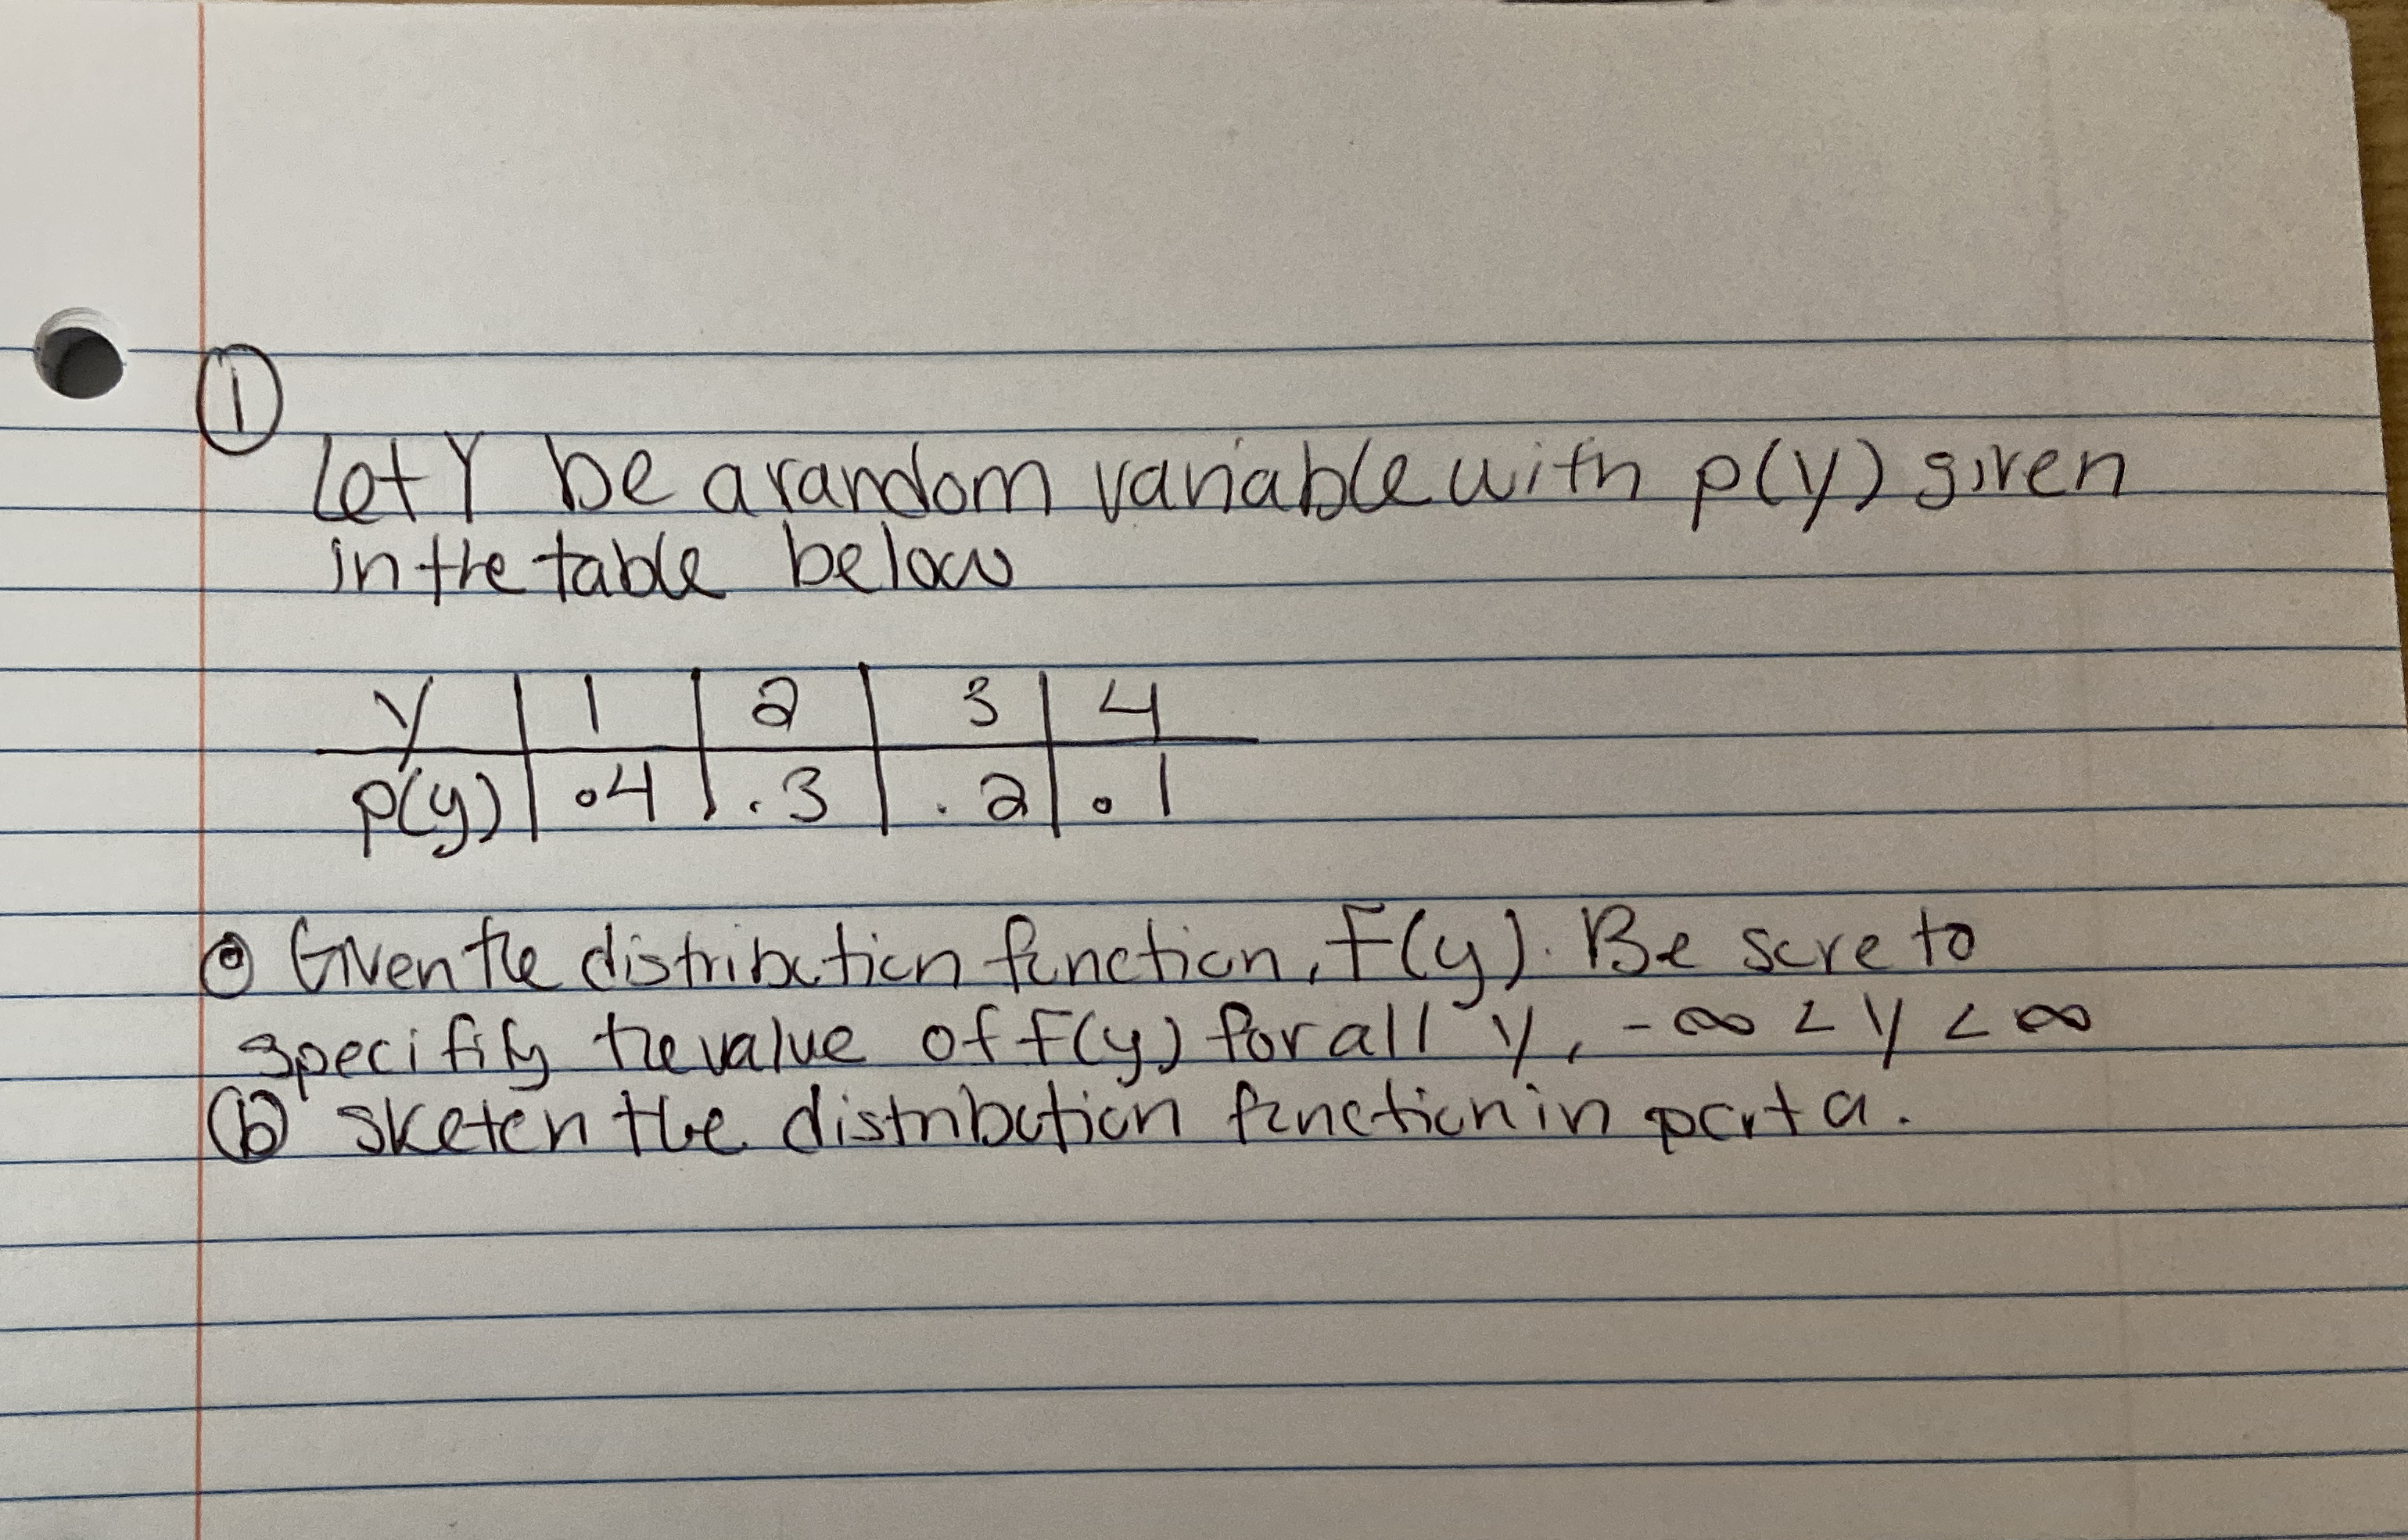 ①
Let Y be a random variable with p(y) given
in the table below
y | 1 | 2 | 3 | 4
p(y) | .4 | .3 | .2 | .1
ⓐ Given the distribution function, F(y). Be sure to
specifify the value of F(y) for all y, -∞ < y < ∞
ⓑ sketch the distribution function in part a.